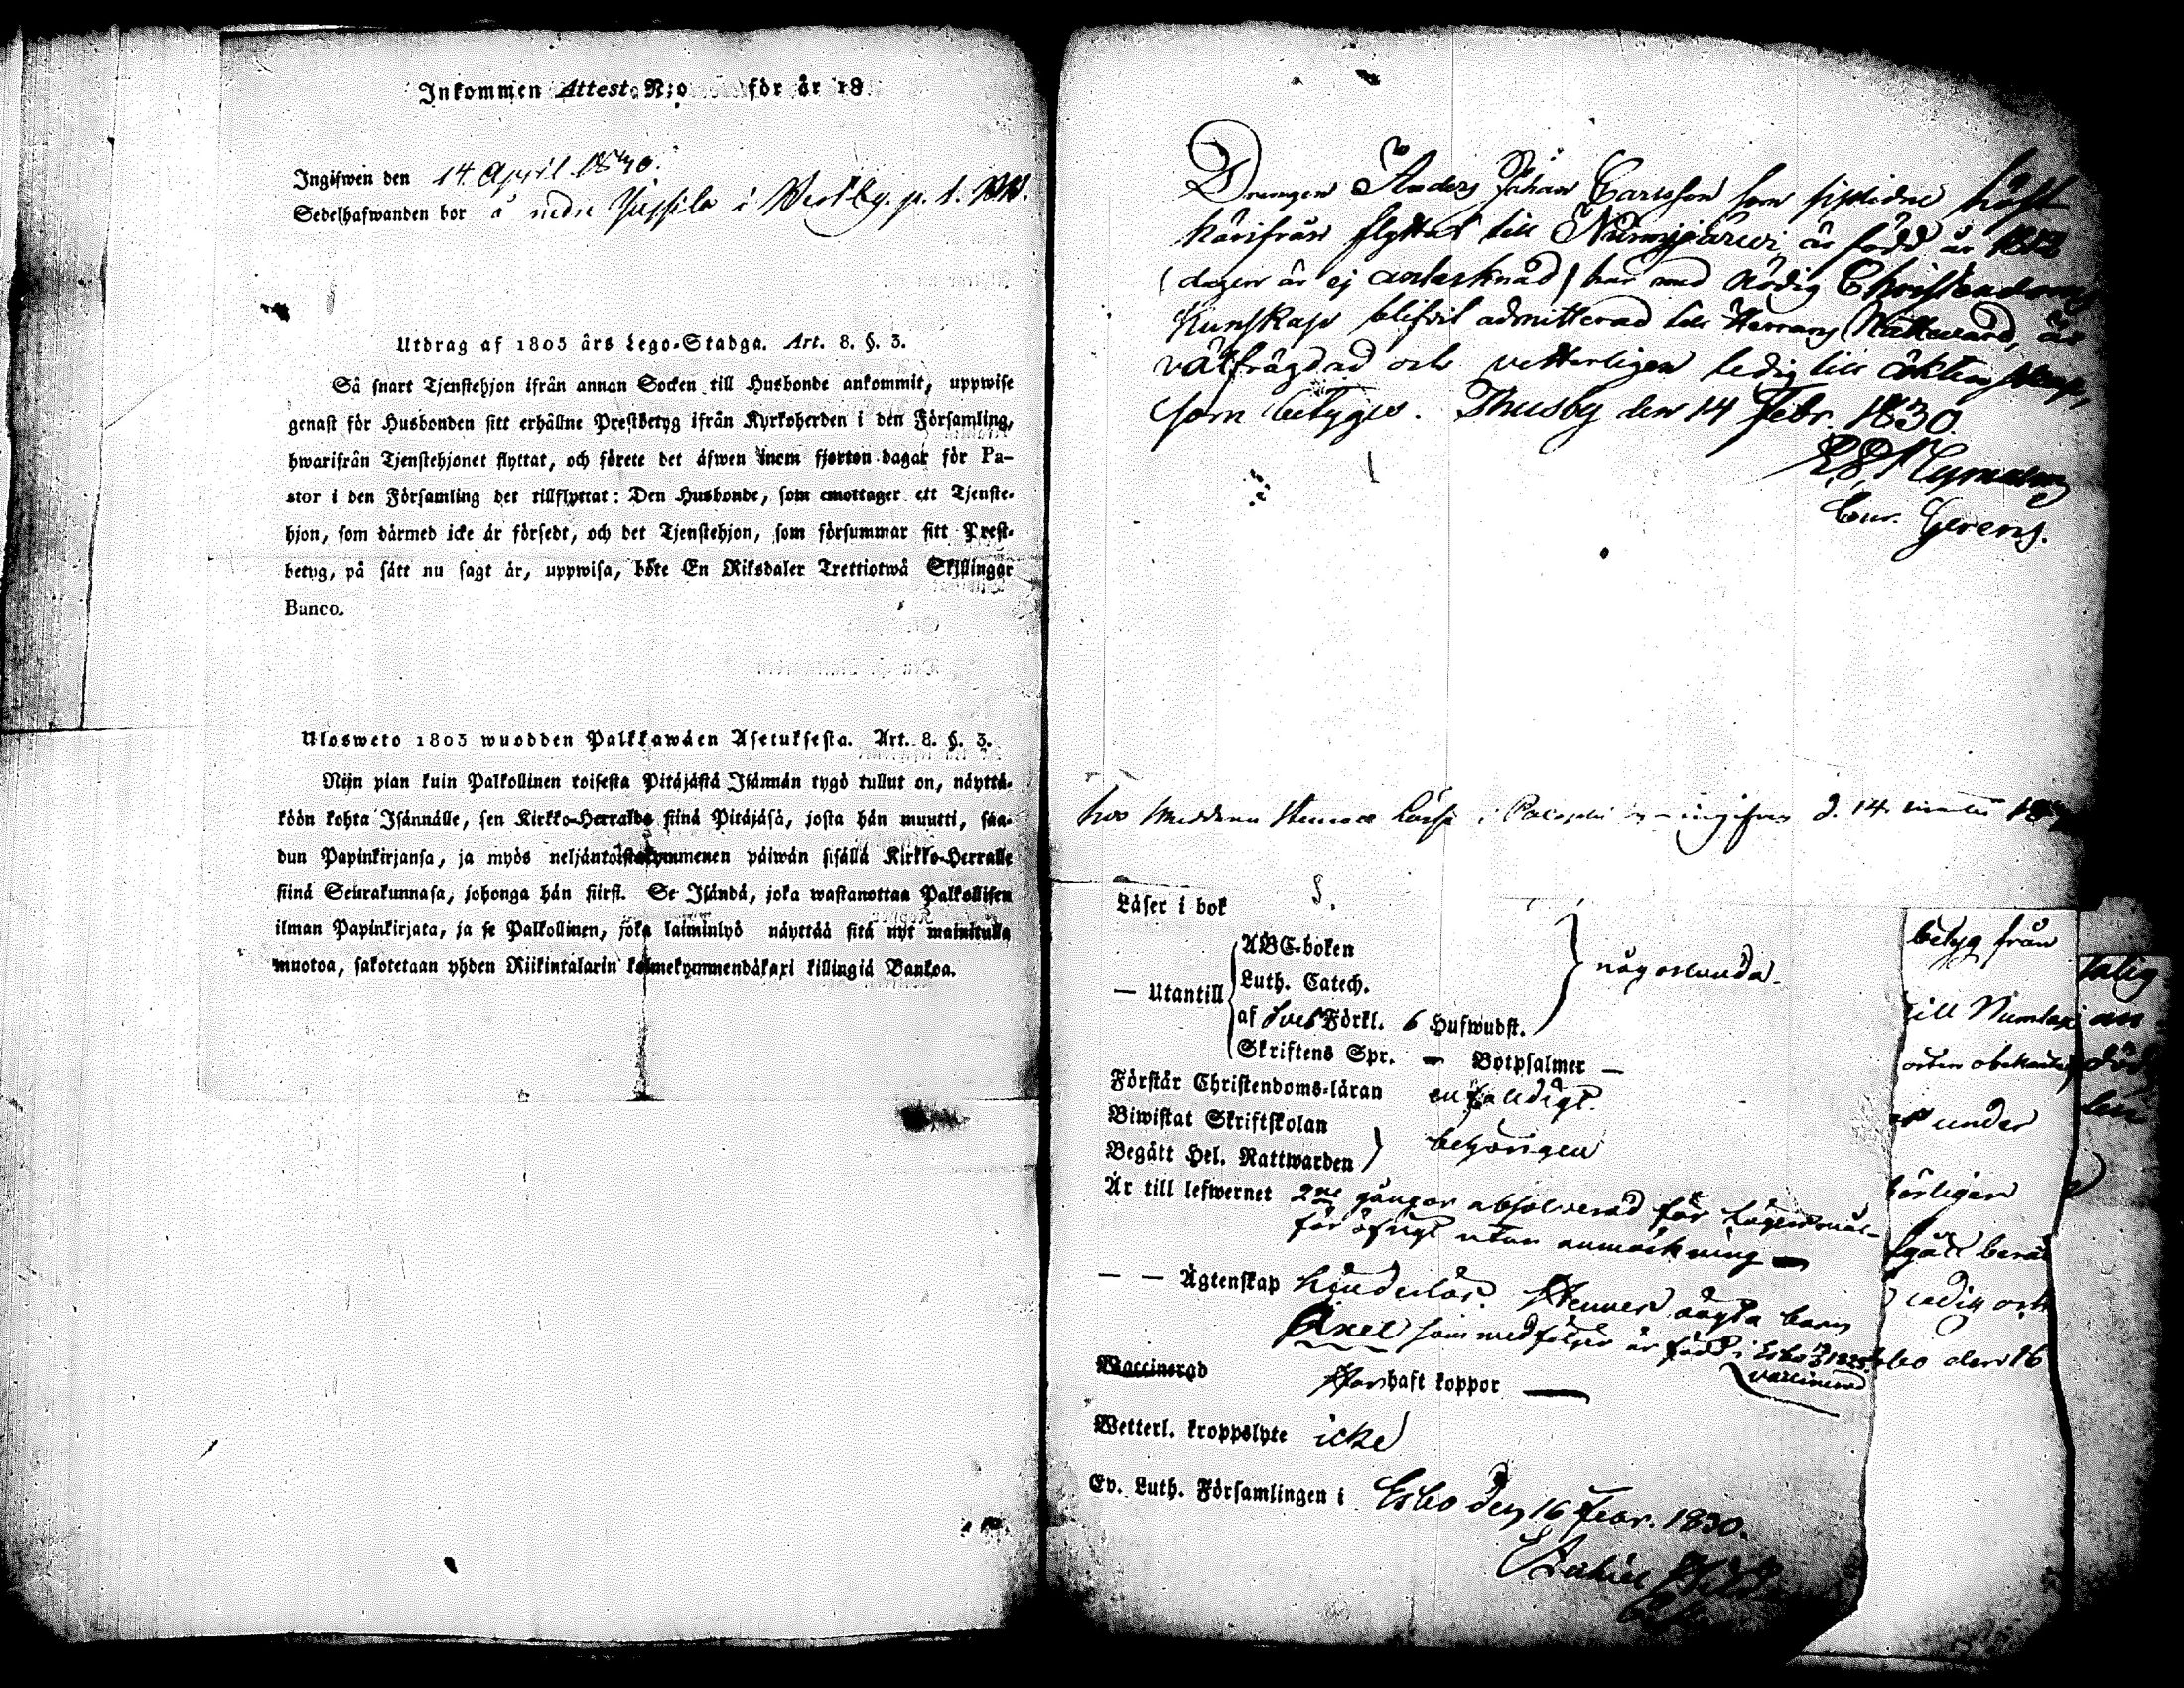 Inkommen Attest N:o för år 18
Ingifwen den 14 April 1830.
Sedelhafwanden bor å nedre Jussila i
Utdrag af 1805 års Lego-Stadga. Art. 8. §. 3.
Så snart Tjenstehjon ifrån annan Socken till Husbonde ankommit, uppwise
genast för Husbonden sitt erhållne Prestbetyg ifrån Kyrkoherden i den Församling,
hwarifrån Tjenstehjonet flyttat, och förete det äfwen inom fjorton dagar för Pa-
stor i den Församling det tillflyttat: Den Husbonde, som emottager ett Tjenste-
hjon, som därmed icke är försedt, och det Tjenstehjon, som försummar sitt Prest-
betyg, på sätt nu sagt är, uppwisa, böte En Riksdaler Trettiotwå Skillingar
Banco.
Ulosweto 1805 wuodden Palkkawäen Asetuksesta. Art. 8. §. 3.
Niin pian kuin Palkollinen toisesta Pitäjästä Isännän tygö tullut on, näyttä-
köön kohta Isännälle, sen Kirkko-Herralda siinä Pitäjäsä, josta hän muutti, saa-
dun Papinkirjansa, ja myös neljäntoistakymmenen päiwän sisällä Kirkko-Herralle
siinä Seurakunnasa, johonga hän siirsi. Se Isändä, joka wastanottaa Palkollisen
ilman Papinkirjata, ja se Palkollinen, joka laiminlyö näyttää sitä nyt mainitulla
muotoa, sakotetaan yhden Riikintalarin kolmekymmendäkaxi killingiä Bankoa.
Drengen Anders Johan Carlsson som sistledne höst
härifrån flyttat till Nurmijärwi är född år
(dagen är ej antecknad) har med nödig Christendoms
kunskap blifvit admitterad till Herrans Nattvard, är
välfrägdad och vetterligen ledig till äktenskap,
som betygas. Thusby den 14 Febr. 1830.
hos ingifven d. 14
Läser i bok
ABC-boken
Luth. Catech.
någorlunda.
— Utantill
af Sveb Förkl. 6 Hufwudst.
Skriftens Spr. — Botpsalmer —
Förstår Christendoms-läran enfaldigt.
Biwistat Skriftskolan
Begått Hel. Nattwarden } behörigen
Är till lefwernet 2ne gånger absolverad för lägersmål
för öfrigt utan anmärkning —
— — Ägtenskap hinderlös. Hennes oägta barn
Axel som medföljer är född i Esbo
vaccinerad
Waccinerad Har haft koppor —
Wetterl. kroppslyte icke
Ev. Luth. Församlingen i Esbo den 16 Febr. 1830.
betyg från
till
orten obekant
under
den 16